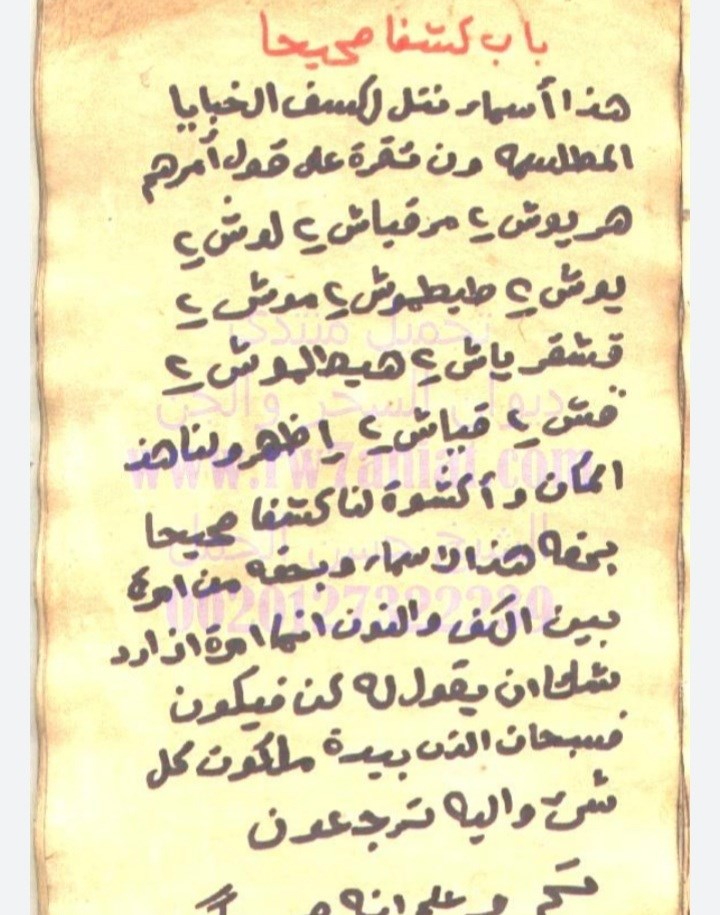 باب كشفا صحيحا
هذا أسماء تتل لكسف الخبايا
المطلسمه ون تقرة على قول أمرهم
هريوش ٢ مرقباش ٢ لوش ٢
يوش ٢ طيطموش ٢ موش ٢
قشقرياش ٢ هيطالموش ٢
فش ٢ قياش ٢ اظهرولنا هذ
المكان وأكشوة لنا كشفا صحيحا
بحقه هذا الاسماء وبحقه من امرة
بين الكف والنون انما امرة اذارد
شك ان يقول له كن فيكون
فسبحان الذى بيدة ملكوت كل
شئ واليه ترجعون
تحميل منتدى
ديوان السحر والجن
www.rw7aniat.com
الشيخ حسن الجمل